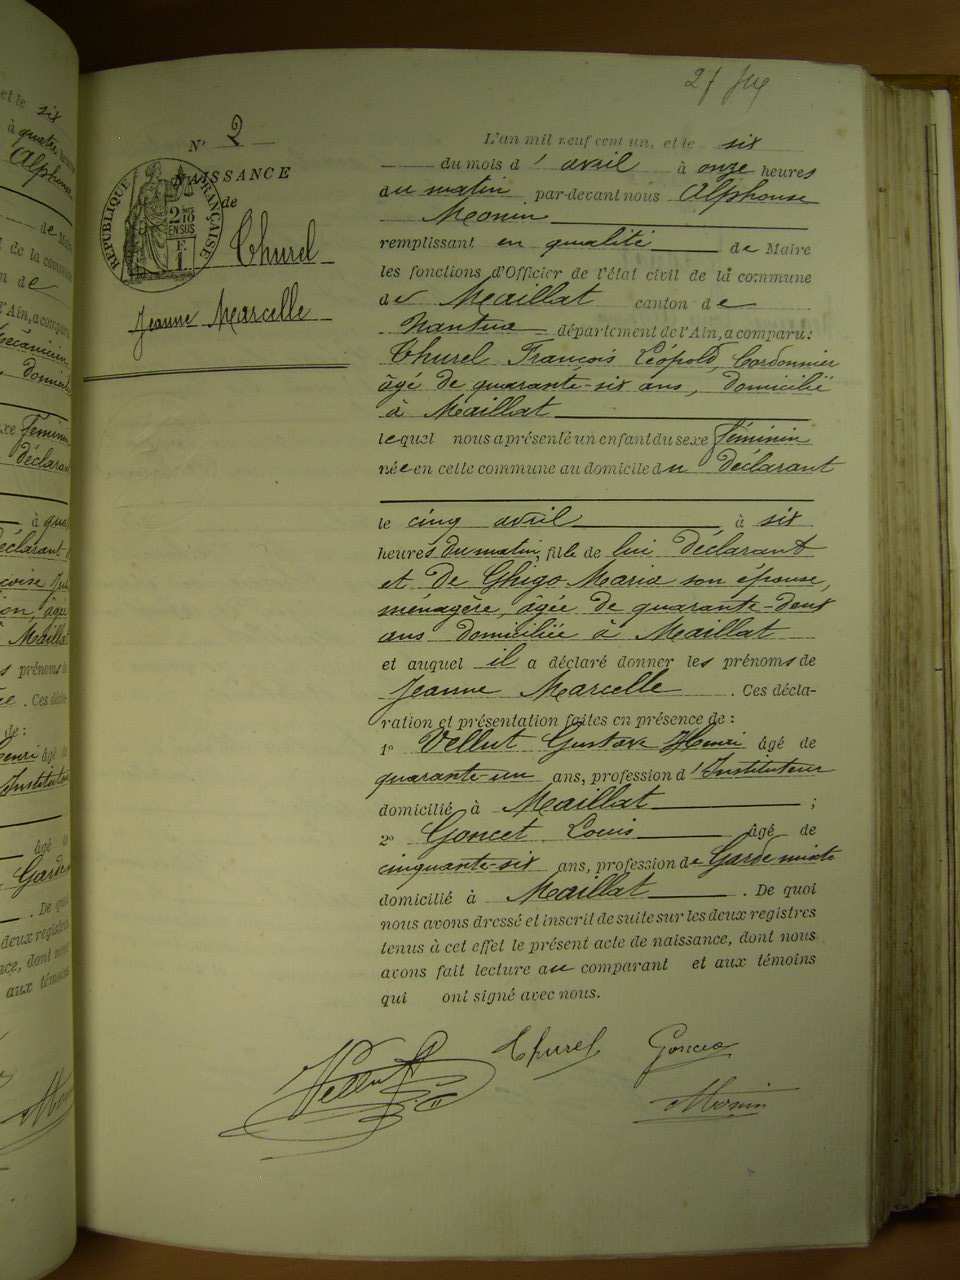 et le six
à quatre heures
Alphonse
de Maire
de la commune
n de
l'Ain, a comparu
mécanicien
domicilié
xe féminin
déclarant
à
déclarant
à Maillat
s prénoms de
. Ces décla
de :
Henri âgé de
Instituteur
âgé de
Garde
. De quoi
deux registres
ce, dont nous
aux témoins
27
N° 2
NAISSANCE
de
RÉPUBLIQUE FRANÇAISE
2/10
EN SUS
Thurel
Jeanne Marcelle
L'an mil neuf cent un, et le six
du mois d'avril à onze heures
du matin par-devant nous Alphonse
Monin
remplissant en qualité de Maire
les fonctions d'Officier de l'état civil de la commune
de Maillat canton de
Nantua département de l'Ain, a comparu :
Thurel François Léopold, Cordonnier
âgé de quarante-six ans, domicilié
à Maillat
lequel nous a présenté un enfant du sexe féminin
née en cette commune au domicile du déclarant
le cinq avril à six
heures du matin, fille de lui déclarant
et de Ghigo Maria son épouse,
ménagère, âgée de quarante-deux
ans domiciliée à Maillat
et auquel il a déclaré donner les prénoms de
Jeanne Marcelle . Ces décla-
ration et présentation faites en présence de :
1° Vellut Gustave Henri âgé de
quarante-un ans, profession d'Instituteur
domicilié à Maillat ;
2° Goncet Louis âgé de
cinquante-six ans, profession de Garde mixte
domicilié à Maillat . De quoi
nous avons dressé et inscrit de suite sur les deux registres
tenus à cet effet le présent acte de naissance, dont nous
avons fait lecture au comparant et aux témoins
qui ont signé avec nous.
Vellut Thurel Goncet
Monin